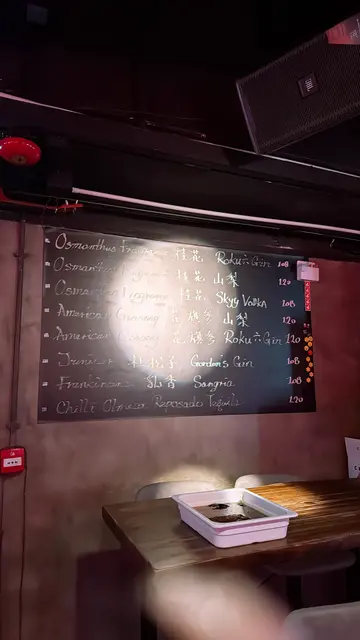 JBL
Osmanthus 桂花 Roku Gin 108
桂花 山梨 120
桂花 Skyy Vodka 108
American Ginseng 花旗参 山梨 120
American 花旗参 Roku Gin 120
杜松子 Gordon's Gin 108
乳香 Sangria 108
Reposado Tequila 120